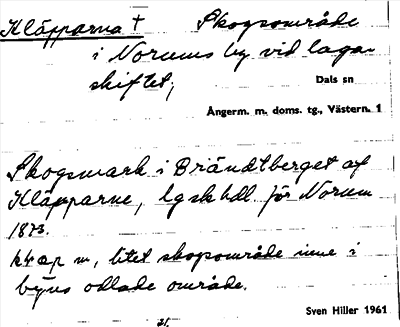 Kläpparna † Skogsområde
i Norums by vid laga
skiftet;
Dals sn
Ångerm. m. doms. tg., Västern. 1
Skogsmark i Brändtberget af
Kläpparne, lgskhdl. för Norum
1873.
m, litet skogsområde inne i
byns odlade område.
Sven Hiller 1961
21.